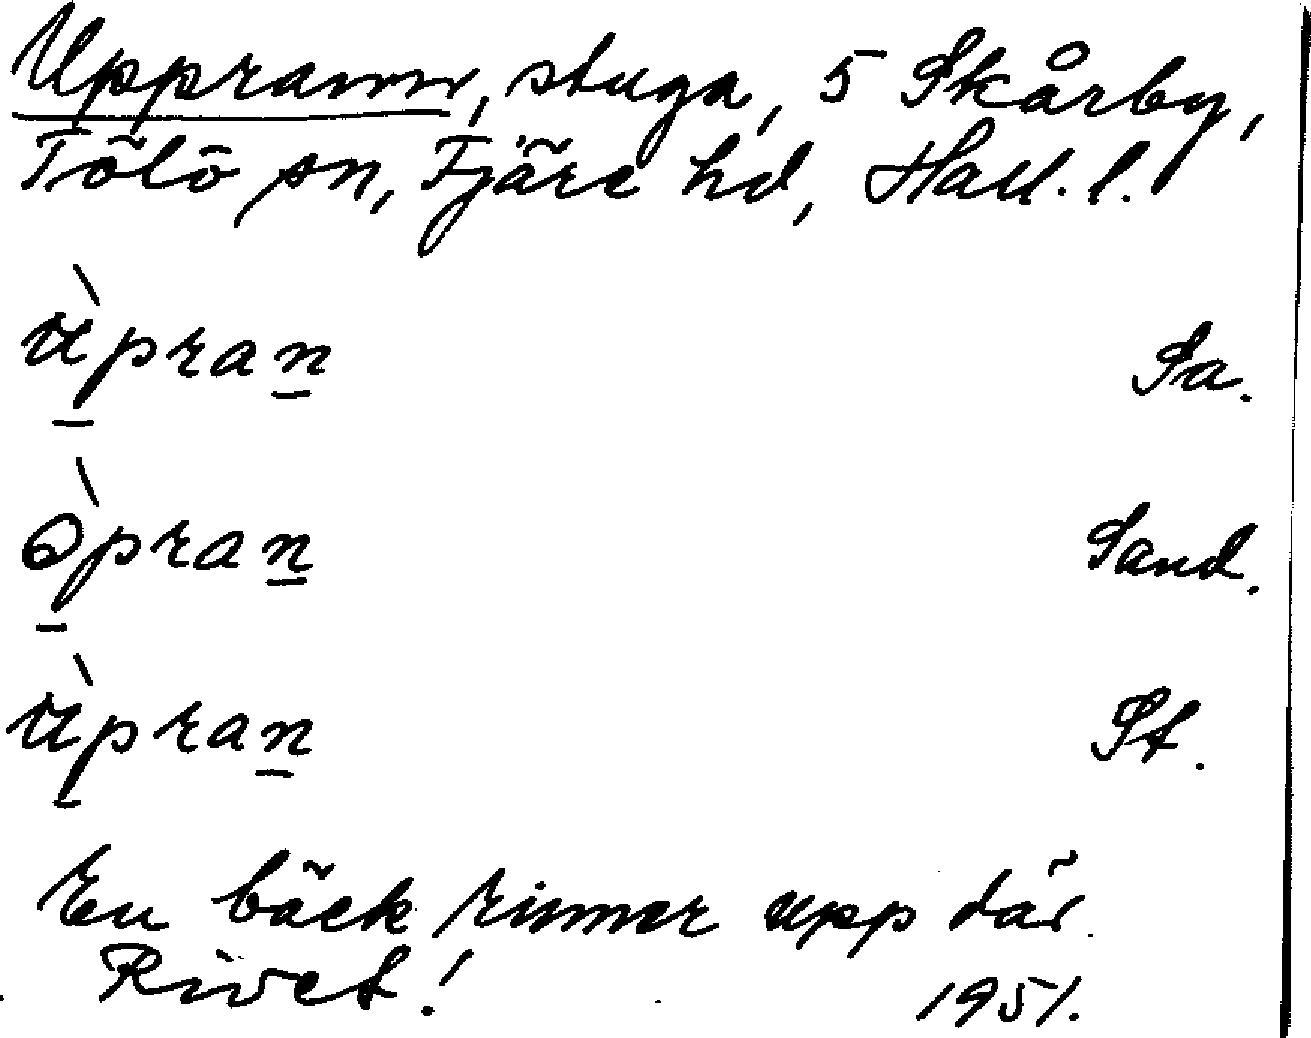 Upprann, stuga, 5 Skårby,
Tölö sn, Fjäre hd, Hall. l.
ùpran Sa.
òpran Sand.
ùpran St.
En bäck rinner upp där
Rivet! 1951.